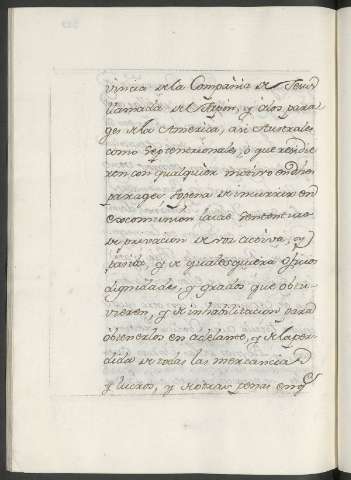 vincia de la Compañia de Jesus
llamada del Japon, y a los para
ges de la America, asi Australes,
como Septentrionales, o que residie
ren con qualquier motivo en dhos
parages, sopena de incurrir en
excomunion latae Sententiae
de privacion de voz activa, y
pasiva, y de qualesquiera oficios
dignidades, y grados que obtu-
vieren, y de inhabilitacion para
obtenerlos en adelante, y de la per
dida de todas las mercancias
y lucros, y de otras penas en q